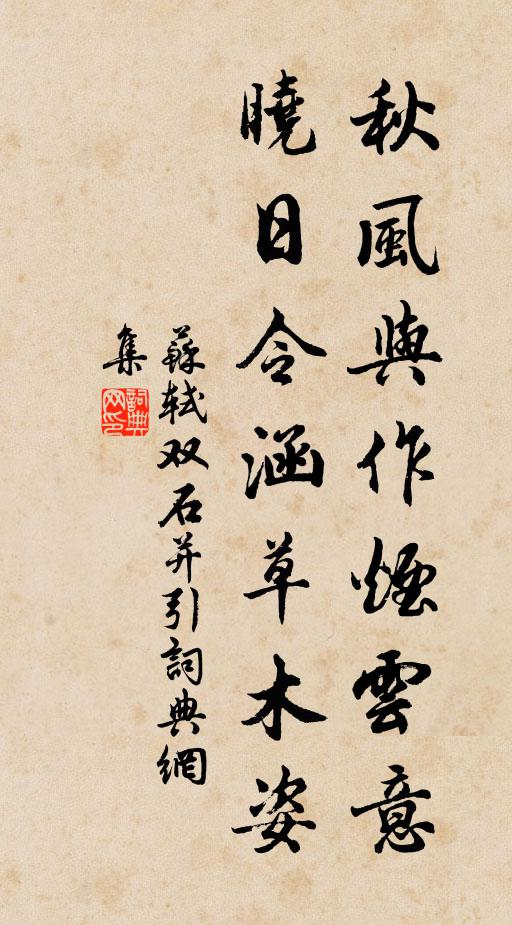 秋風與作煙雲意
曉日令涵草木姿
蘇軾双石并引詞典網
集
詞典网印